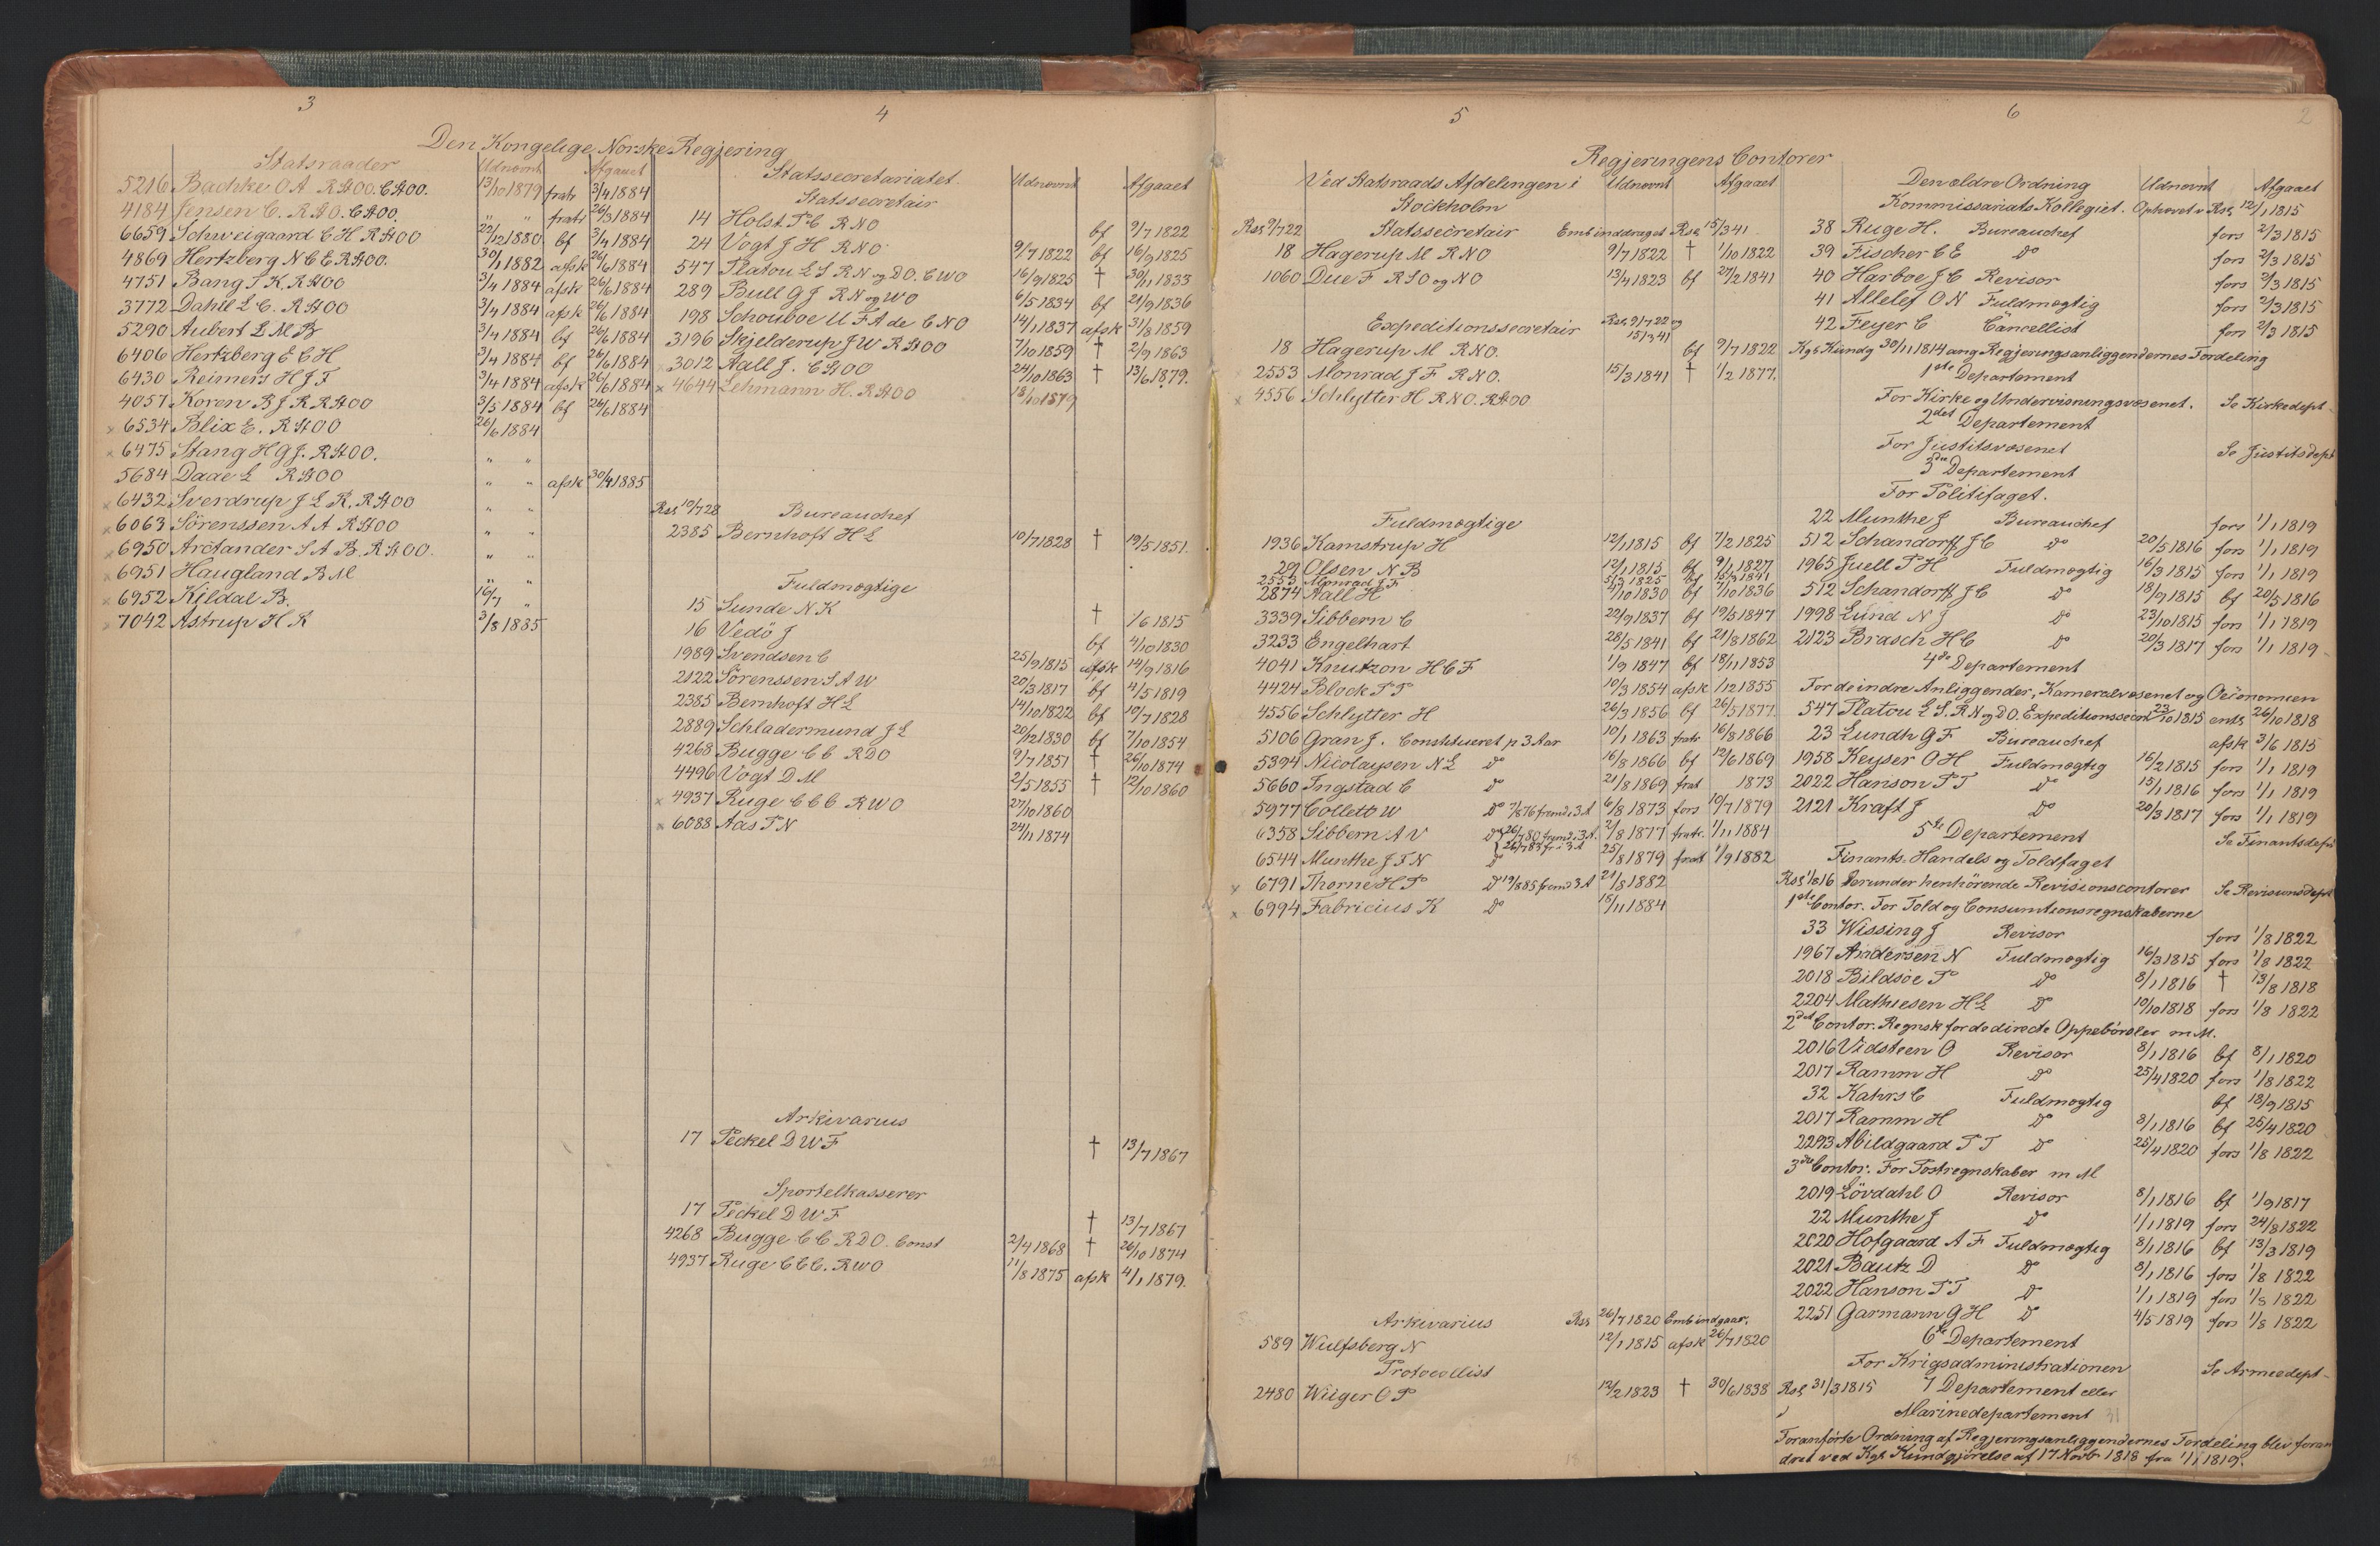 3
4
Den Kongelige Norske Regjering
Statsraader Udnævnt Afgaaet
5216 Bachke O A RStOO. CStOO. 13/10 1879 fratr 3/4 1884
4184 Jensen C. RStO. CStOO. " " fratr 26/3 1884
6659 Schweigaard C H RStOO 22/12 1880 bf 3/4 1884
4869 Hertzberg N C E RStOO. 30/1 1882 afsk 26/6 1884
4751 Bang P K. RStOO 3/4 1884 afsk 26/6 1884
3772 Dahll L C. RStOO 3/4 1884 afsk 26/6 1884
5290 Aubert L M B 3/4 1884 bf 26/6 1884
6406 Hertzberg E C H 3/4 1884 bf 26/6 1884
6430 Reimers H J F 3/4 1884 afsk 26/6 1884
4057 Koren B J R RStOO 3/5 1884 bf 26/6 1884
x 6534 Blix E. RStOO 26/6 1884
x 6475 Stang H G J. RStOO. " "
5684 Daae L RStOO " " afsk 30/4 1885
x 6432 Sverdrup J L R. RStOO " "
x 6063 Sörenssen A A RStOO " "
x 6950 Arctander S A B. RStOO. " "
x 6951 Haugland B M " "
x 6952 Kildal B. 16/7 "
x 7042 Astrup H R 3/8 1885
Statssecretariatet. Udnævnt Afgaaet
Statssecretair
14 Holst P C RNO bf 9/7 1822
24 Vogt J H RNO 9/7 1822 bf 16/9 1825
547 Platou L S RN og DO. CWO 16/9 1825 † 30/11 1833
289 Bull G J RN og WO 6/5 1834 bf 21/9 1836
198 Schouboe U F A de CNO 14/1 1837 afsk 31/8 1859
3196 Skjelderup J W RStOO 7/10 1859 † 2/9 1863
x 3012 Aall J. CStOO 24/10 1863 † 13/6 1879.
x 4644 Lehmann H. RStOO 18/10 1879
Res 10/7 28 Bureauchef
2385 Bernhoft H L 10/7 1828 † 19/5 1851.
Fuldmægtige
15 Sunde N K † 1/6 1815
16 Vedö J bf 4/10 1830
1989 Svendsen C 25/9 1815 afsk 14/9 1816
2122 Sörenssen S A W 20/3 1817 bf 4/5 1819
2385 Bernhoft H L 14/10 1822 bf 10/7 1828
2889 Schladermund J L 20/12 1830 bf 7/10 1854
4268 Bugge C C RDO 9/7 1851 † 26/10 1874
4496 Vogt D M 2/5 1855 † 12/10 1860
x 4937 Ruge C C C RWO 27/10 1860
x 6088 Aas P N 24/11 1874
Arkivarius
17 Peckel D W F † 13/7 1867
Sportelkasserer
17 Peckel D W F † 13/7 1867
4268 Bugge C C RDO. Const 2/4 1868 † 26/10 1874
4937 Ruge C C C. RWO 11/8 1875 afsk 4/1 1879.
5
6
2
Regjeringens Contorer
Ved Statsraads Afdelingen i Udnævnt Afgaaet
Stockholm
Res 9/7 22 Statssecretair Emb inddraget Res 15/3 41
18 Hagerup M RNO 9/7 1822 † 1/10 1822
1060 Due F RSO og NO 13/4 1823 bf 27/2 1841
Expeditionssecretair Res 9/7 22 og 15/3 41
18 Hagerup M RNO. bf 9/7 1822
2553 Monrad J F RNO. 15/3 1841 † 1/2 1877.
x 4556 Schlytter H RNO. RStOO
Fuldmægtige
1936 Kamstrup H 12/1 1815 bf 7/2 1825
29 Olsen N B 12/1 1815 bf 9/1 1827
2553 Monrad J F 5/3 1825 bf 15/3 1841
2874 Aall H 2/10 1830 bf 7/10 1836
3339 Sibbern C 22/9 1837 bf 19/5 1847
3233 Engelhart 28/5 1841 bf 21/8 1862
4041 Knutzon H C F 1/9 1847 bf 18/11 1853
4424 Block P P 10/3 1854 afsk 1/12 1855
4556 Schlytter H 26/3 1856 bf 26/5 1877.
5106 Gran J. Constitueret p 3 Aar 10/1 1863 fratr. 16/8 1866
5394 Nicolaysen N L do 16/8 1866 bf 12/6 1869
5660 Ingstad C do 21/8 1869 frat 1873
5977 Collett W Do 7/8 76 fremd. 3 A 6/8 1873 fors 10/7 1879
6358 Sibbern A V Do 26/7 80 fremd. 3 A. 26/7 83 fr. 3 A 2/8 1877 fratr. 1/11 1884
6544 Munthe J F N Do 25/8 1879 frat 1/9 1882
x 6791 Thorne H P Do 19/8 85 fremd 3 A 21/8 1882
x 6994 Fabricius K Do 18/11 1884
Arkivarius Res 26/7 1820 Emb indgaar.
589 Wulfsberg N 12/1 1815 afsk 26/7 1820
Protocollist
2480 Wüger O P 12/2 1823 † 30/6 1838
Den ældre Ordning Udnævnt Afgaaet
Kommissariats Kollegiet. Ophævet v Res 12/1 1815
38 Ruge H. Bureauchef fors 2/3 1815
39 Fischer C E do fors 2/3 1815
40 Harboe J C Revisor fors 2/3 1815
41 Allelef O N Fuldmægtig fors 2/3 1815
42 Feyer C Cancellist fors 2/3 1815
Kgl Kundg 30/11 1814 ang Regjeringsanliggendernes Fordeling
1ste Departement
For Kirke og Undervisningsvæsenet. Se Kirkedept
2det Departement
For Justitsvæsenet Se Justitsdept
3die Departement
For Politifaget.
22 Munthe J Bureauchef fors 1/1 1819
512 Schandorff J C do 20/5 1816 fors 1/1 1819
1965 Juell P H Fuldmægtig 16/3 1815 fors 1/1 1819
512 Schandorff J C do 18/9 1815 bf 20/5 1816
1998 Lund N J do 23/10 1815 fors 1/1 1819
2123 Brasch H C do 20/3 1817 fors 1/1 1819
4de Departement
For de indre Anliggender, Kameralvæsenet og Oeconomien
547 Platou L S. RN og DO. Expeditionssecr 23/10 1815 ents 26/10 1818
23 Lundh G F Bureauchef afsk 3/6 1815
1958 Keyser O H Fuldmægtig 16/2 1815 fors 1/1 1819
2022 Hanson P T do 15/1 1816 fors 1/1 1819
2121 Kraft J do 20/3 1817 fors 1/1 1819
5te Departement Se Finantsdept
Finants. Handels og Toldfaget
Res 1/1 816 Herunder henhörende Revisionscontorer Se Revisionsdept
1ste Contor. For Told og Consumtionsregnskaberne
33 Wissing J Revisor fors 1/8 1822
1967 Andersen N Fuldmægtig 16/3 1815 fors 1/8 1822
2018 Bildsöe P do 8/1 1816 † 13/8 1818
2204 Mathiesen H L do 10/10 1818 fors 1/8 1822
2det Contor. Regnsk for de directe Oppebörsler m M.
2016 Vidsteen O Revisor 8/1 1816 bf 8/1 1820
2017 Ramm H do 25/4 1820 fors 1/8 1822
32 Kahrs C Fuldmægtig bf 18/9 1815
2017 Ramm H do 8/1 1816 bf 25/4 1820
2293 Abildgaard P T do 25/4 1820 fors 1/8 1822
3die Contor. For Postregnskaber m M
2019 Lövdahl O Revisor 8/1 1816 bf 1/9 1817
22 Munthe J do 1/1 1819 fors 24/8 1822
2020 Hofgaard A F Fuldmægtig 8/1 1816 bf 13/3 1819
2021 Bautz D do 8/1 1816 fors 1/8 1822
2022 Hanson P T do 1/1 1819 fors 1/8 1822
2251 Garmann G H do 4/5 1819 fors 1/8 1822
6te Departement
For Krigsadministrationen Se Armeedept
Res 31/3 1815 7 Departement eller
Marinedepartement
Foranförte Ordning af Regjeringsanliggendernes Fordeling blev foran
dret ved Kgl Kundgjörelse af 17 Novbr 1818 fra 1/1 1819.